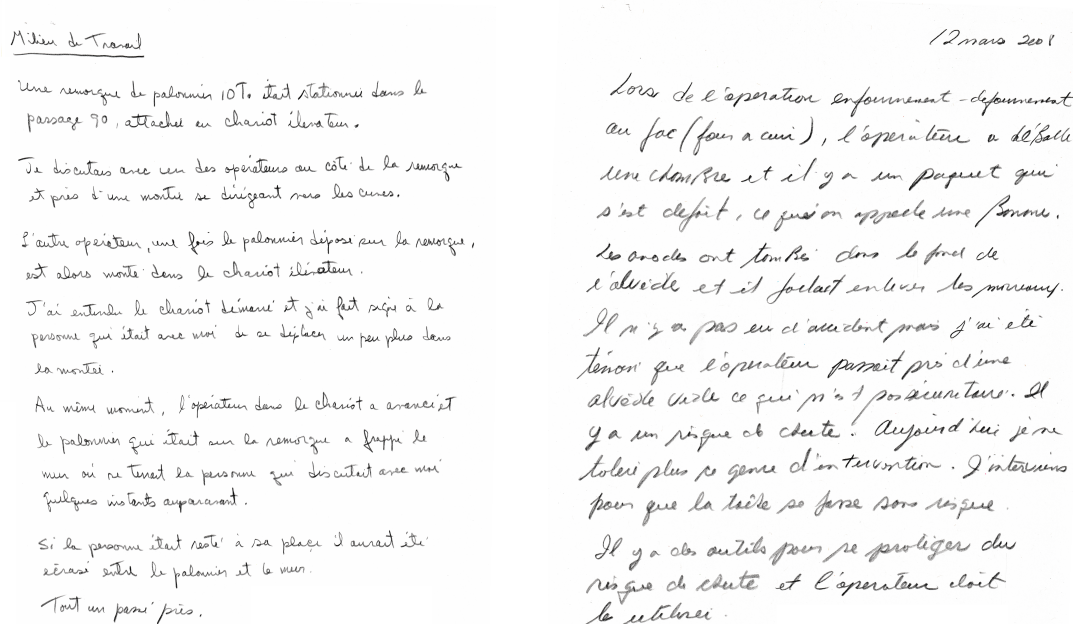 Milieu de Travail
Une remorque de palonnier 10T. était stationnée dans le
passage 90, attachée au chariot élévateur.
Je discutais avec un des opérateurs au côté de la remorque
et près d'une montée se dirigeant vers les cuves.
L'autre opérateur, une fois le palonnier déposé sur la remorque,
est alors monté dans le chariot élévateur.
J'ai entendu le chariot démarré et j'ai fait signe à la
personne qui était avec moi de se déplacer un peu plus dans
la montée.
Au même moment, l'opérateur dans le chariot a avancé et
le palonnier qui était sur la remorque a frappé le
mur où se tenait la personne qui discutait avec moi
quelques instants auparavant.
Si la personne était resté à sa place il aurait été
écrasé entre le palonnier et le mur.
Tout un passé près.
12 mars 2008
Lors de l'opération enfournement-défournement
au fac (four a cuir), l'opérateur a déballé
une chambre et il y a un paquet qui
s'est défait, ce qu'on appelle une Bonne.
Les anodes ont tombés dans le fond de
l'alvéole et il fallait enlever les morceaux.
Il n'y a pas eu d'accident mais j'ai été
témoin que l'opérateur passait près d'une
alvéole vide ce qui n'est pas sécuritaire. Il
y a un risque de chute. Aujourd'hui je ne
toléré plus ce genre d'intervention. J'interviens
pour que la tâche se fasse sans risque.
Il y a des outils pour se protéger du
risque de chute et l'opérateur doit
le utiliser.